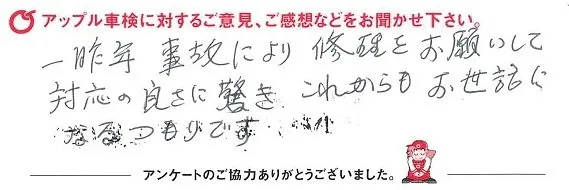 アップル車検に対するご意見、ご感想などをお聞かせ下さい。
一昨年 事故により 修理をお願いして
対応の良さに驚き これからもお世話に
なるつもりです
アンケートのご協力ありがとうございました。